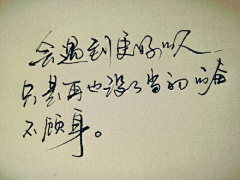 会遇到更好的人
只是再也没了当初的奋
不顾身。